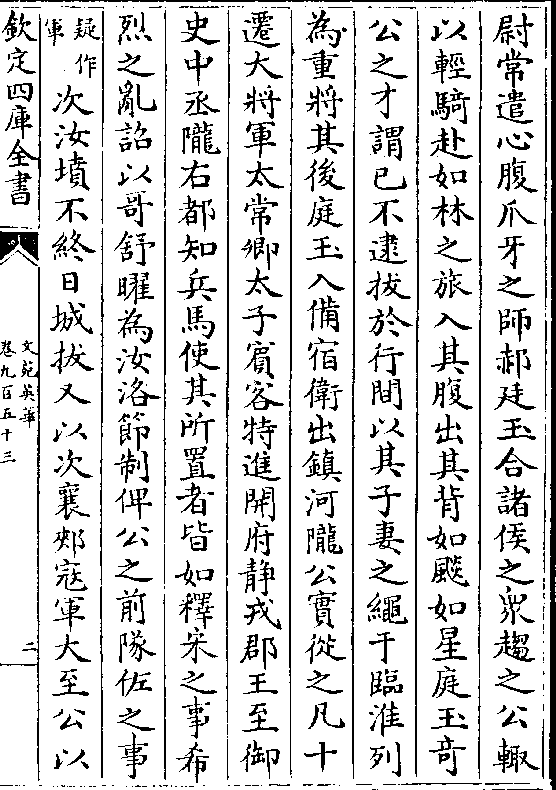 尉常遣心腹爪牙之師郝廷玉合諸侯之衆趨之公輙
以輕騎赴如林之旅入其腹出其背如飈如星庭玉竒
公之才謂已不逮拔於行間以其子妻之繩于臨淮列
為重將其後庭玉入備宿衛出鎮河隴公實從之凡十
遷大將軍太常卿太子賓客特進開府静戎郡王至御
史中丞隴右都知兵馬使其所置者皆如釋宋之事希
烈之亂詔以哥舒曜為汝洛節制俾公之前隊佐之事
疑作
軍
次汝墳不終日城拔又以次襄郟寇軍大至公以
欽定四庫全書
文苑英華
卷九百五十三
二